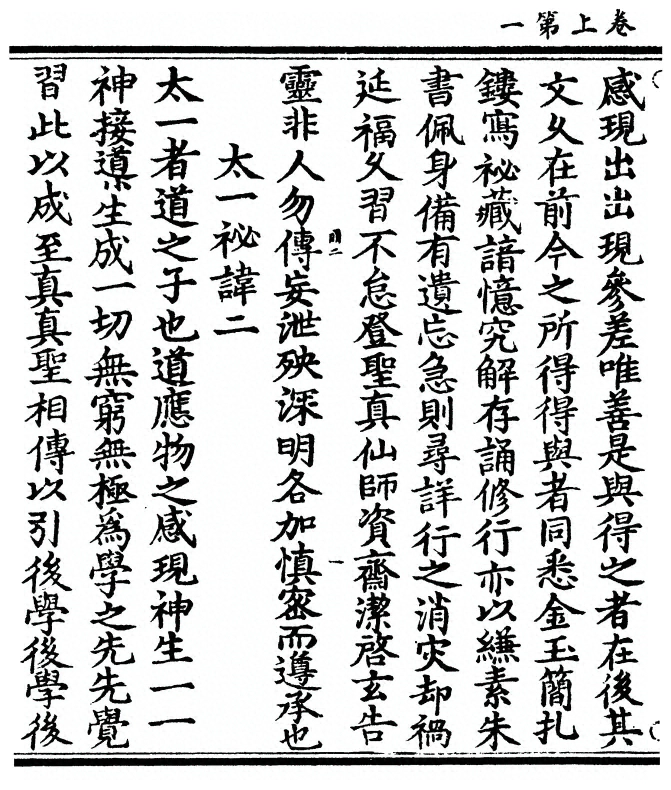 卷上第一
感現出出現參差唯善是與得之者在後其
文久在前今之所得得與者同悉金玉簡札
鏤寫祕藏諳憶究解存誦修行亦以縑素朱
書佩身備有遺忘急則尋詳行之消灾却禍
延福久習不怠登聖真仙師資齋潔啓玄告
靈非人勿傳妄泄殃深明各加慎密而遵承也
太一祕諱二
太一者道之子也道應物之感現神生一一
神接道以生成一切無窮無極為學之先先覺
習此以成至真真聖相傳以引後學後學後